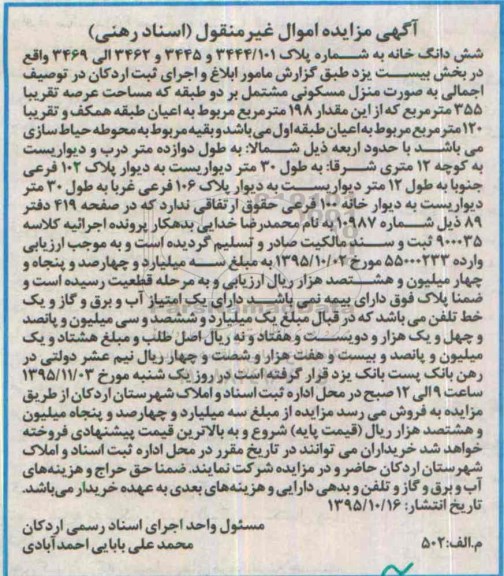 آگهی مزایده اموال غیرمنقول (اسناد رهنی)
شش دانگ خانه به شماره پلاک ۳۴۴۴/۱۰۱ و ۳۴۴۵ و ۳۴۶۲ الی ۳۴۶۹ واقع
در بخش بیست یزد طبق گزارش مامور ابلاغ و اجرای ثبت اردکان در توصیف
اجمالی به صورت منزل مسکونی مشتمل بر دو طبقه که مساحت عرصه تقریبا
۳۵۵ مترمربع که از این مقدار ۱۹۸ متر مربع مربوط به اعیان طبقه همکف و تقریبا
۱۲۰متر مربع مربوط به اعیان طبقه اول می‌باشد و بقیه مربوط به محوطه حیاط سازی
می باشد با حدود اربعه ذیل شمالا: به طول دوازده متر درب و دیواریست
به کوچه ۱۲ متری شرقا: به طول ۳۰ متر دیواریست به دیوار پلاک ۱۰۲ فرعی
جنوبا به طول ۱۲ متر دیواریست به دیوار پلاک ۱۰۶ فرعی غربا به طول ۳۰ متر
دیواریست به دیوار خانه ۱۰۰ فرعی حقوق ارتفاقی ندارد که در صفحه ۴۱۹ دفتر
۸۹ ذیل شماره ۱۰۹۸۷ به نام محمدرضا خدایی بدهکار پرونده اجرائیه کلاسه
۹۰۰۰۳۵ ثبت و سند مالکیت صادر و تسلیم گردیده است و به موجب ارزیابی
وارده ۵۵۰۰۰۲۳۳ مورخ ۱۳۹۵/۱۰/۰۲ به مبلغ سه میلیارد و چهارصد و پنجاه و
چهار میلیون و هشتصد هزار ریال ارزیابی و به مرحله قطعیت رسیده است و
ضمنا پلاک فوق دارای بیمه نمی باشد دارای یک امتیاز آب و برق و گاز و یک
خط تلفن می باشد که در قبال مبلغ یک میلیارد و ششصد و سی میلیون و پانصد
و چهل و یک هزار و دویست و هفتاد و نه ریال اصل طلب و مبلغ هشتاد و یک
میلیون و پانصد و بیست و هفت هزار و شصت و چهار ریال نیم عشر دولتی در
رهن بانک پست بانک یزد قرار گرفته است در روز یک شنبه مورخ ۱۳۹۵/۱۱/۰۳
ساعت ۹ الی ۱۲ صبح در محل اداره ثبت اسناد و املاک شهرستان اردکان از طریق
مزایده به فروش می رسد مزایده از مبلغ سه میلیارد و چهارصد و پنجاه میلیون
و هشتصد هزار ریال (قیمت پایه) شروع و به بالاترین قیمت پیشنهادی فروخته
خواهد شد خریداران می توانند در تاریخ مقرر در محل اداره ثبت اسناد و املاک
شهرستان اردکان حاضر و در مزایده شرکت نمایند. ضمنا حق حراج و هزینه‌های
آب و برق و گاز و تلفن و بدهی دارایی و هزینه‌های بعدی به عهده خریدار می‌باشد.
تاریخ انتشار: ۱۳۹۵/۱۰/۱۶
مسئول واحد اجرای اسناد رسمی اردکان
محمد علی بابایی احمدآبادی
م.الف:۵۰۲